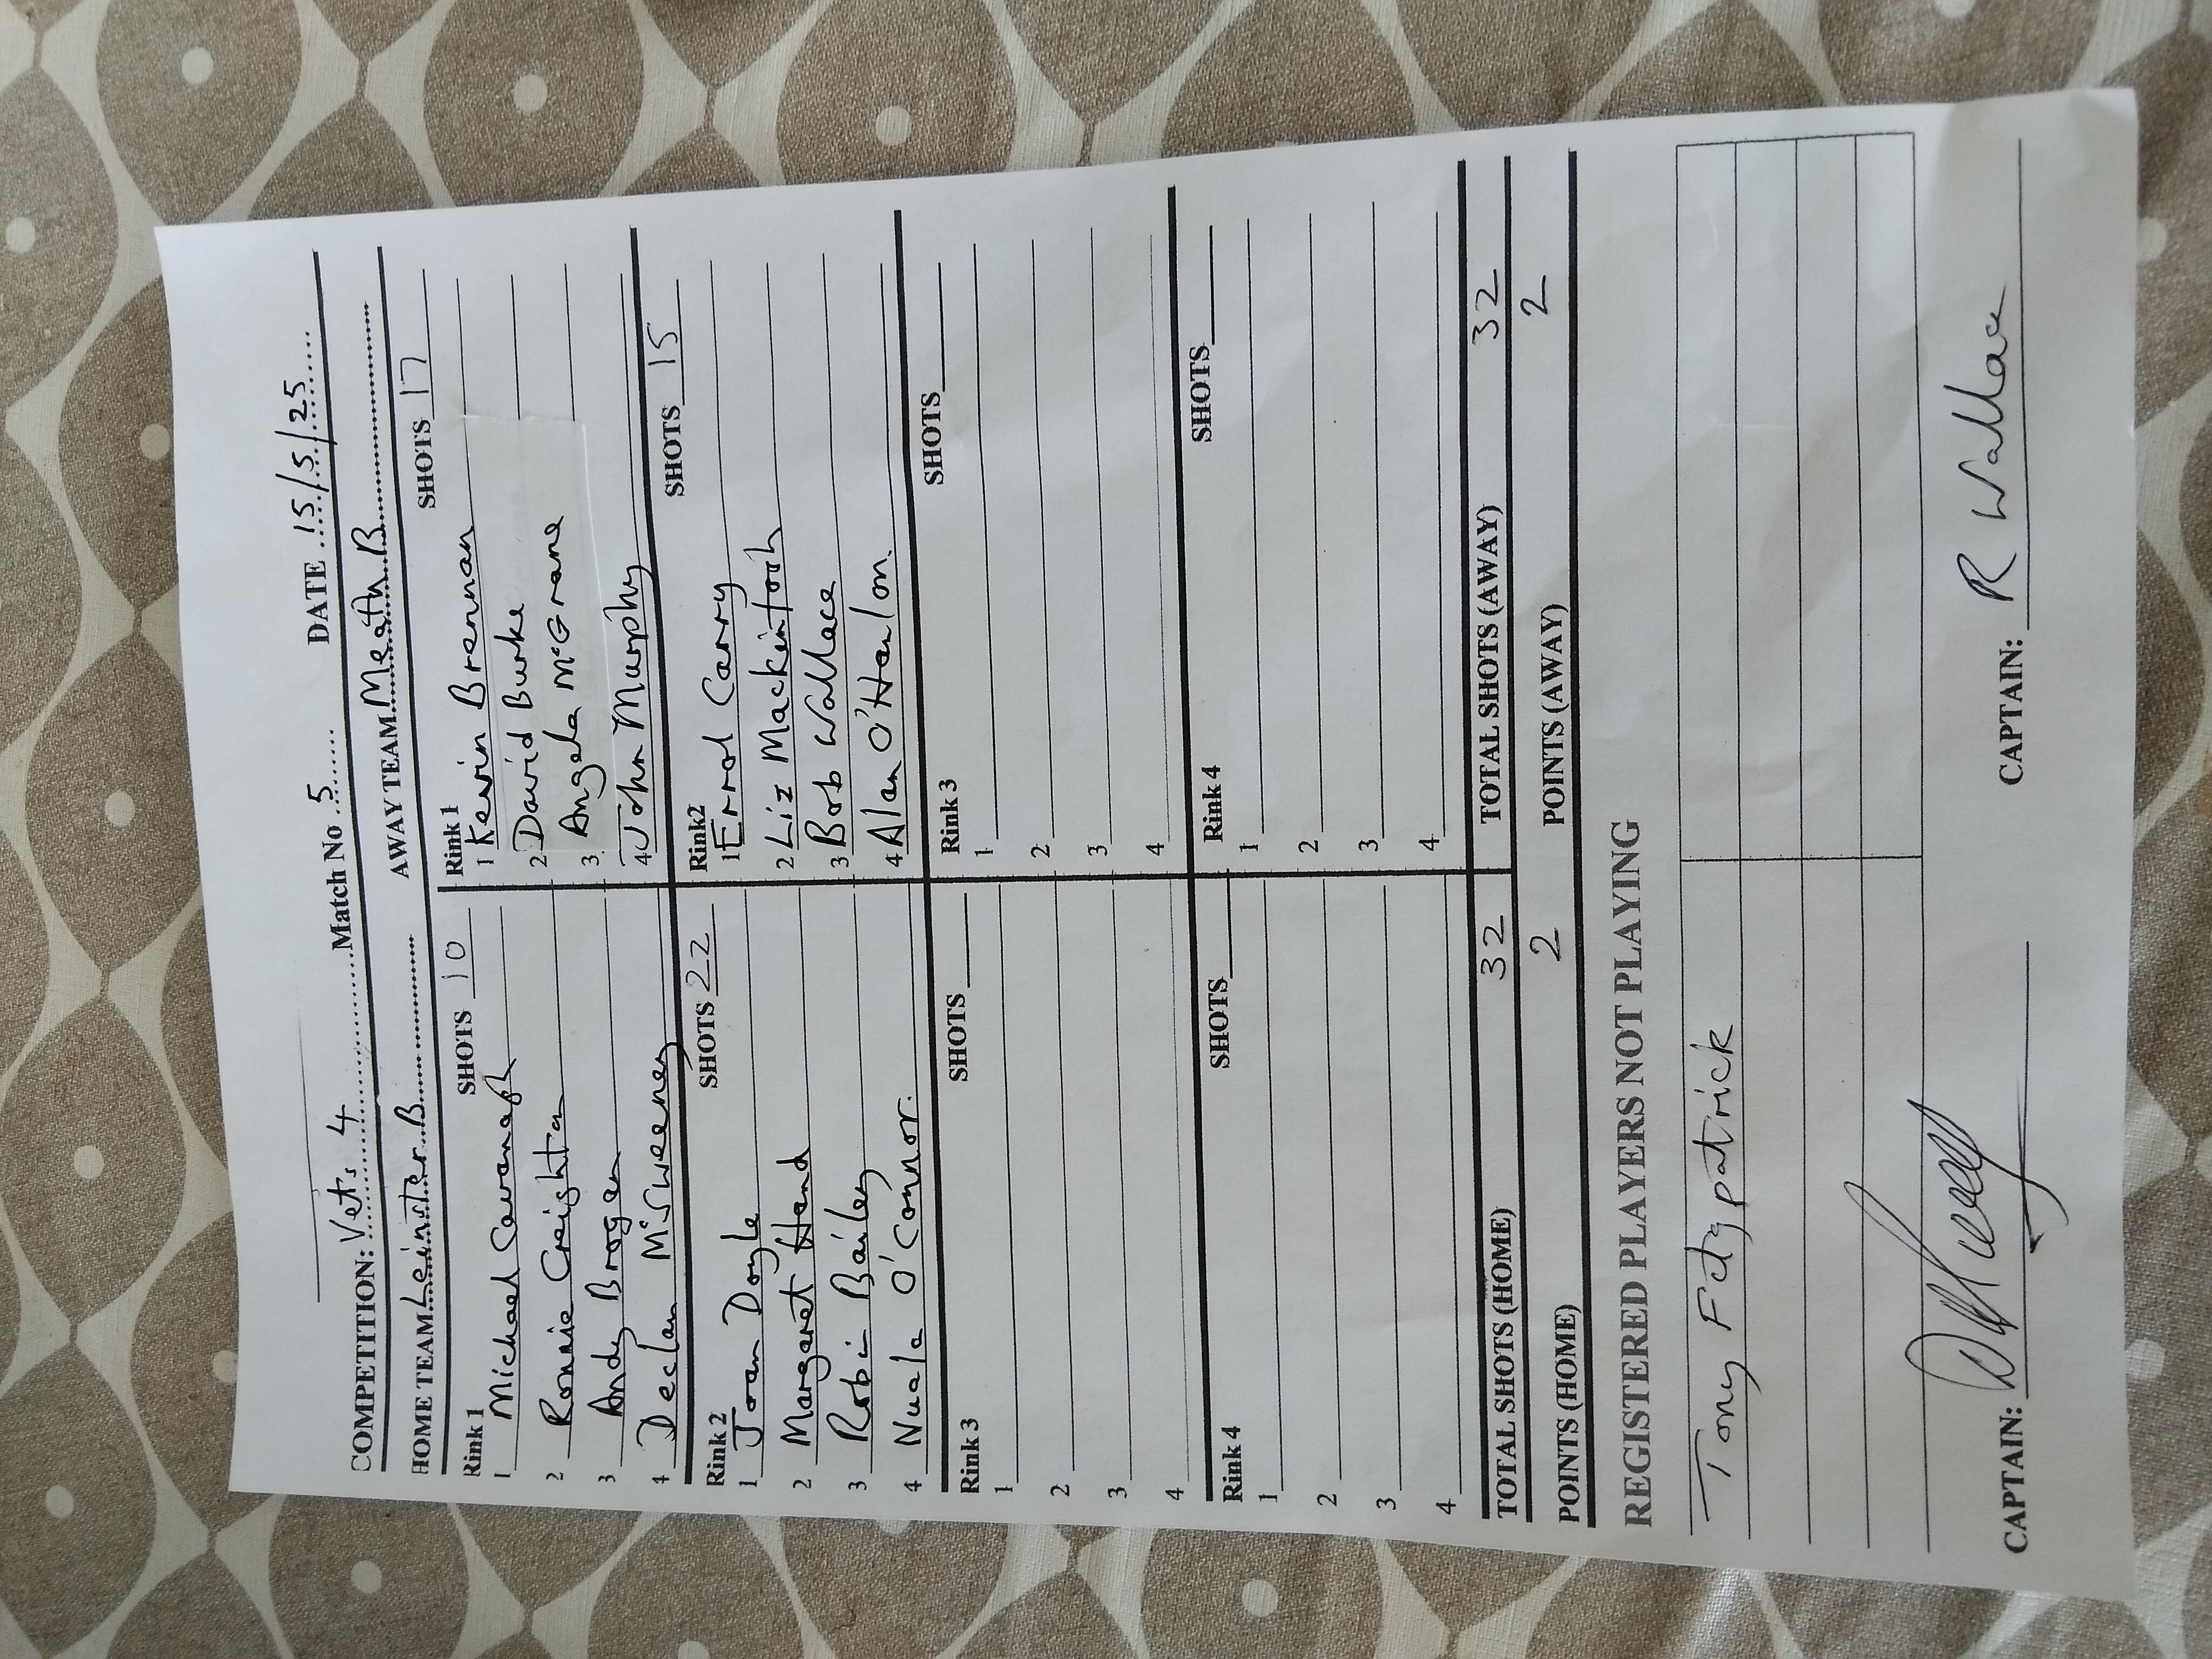 COMPETITION: Vets 4 Match No 5 DATE 15/5/25
HOME TEAM Leinster B AWAY TEAM Meath B
Rink 1 SHOTS 10 Rink 1 SHOTS 17
1 Michael Cavanagh 1 Kevin Brennan
2 Ronnie Creighton 2 David Burke
3 Andy Brogan 3 Angela McGrane
4 Declan McSweeney 4 John Murphy
Rink 2 SHOTS 22 Rink2 SHOTS 15
1 Joan Doyle 1 Errol Carry
2 Margaret Hand 2 Liz Mackintosh
3 Robin Bailey 3 Bob Wallace
4 Nuala O'Connor. 4 Alan O'Hanlon.
Rink 3 SHOTS Rink 3 SHOTS
1 1
2 2
3 3
4 4
Rink 4 SHOTS Rink 4 SHOTS
1 1
2 2
3 3
4 4
TOTAL SHOTS (HOME) 32 TOTAL SHOTS (AWAY) 32
POINTS (HOME) 2 POINTS (AWAY) 2
REGISTERED PLAYERS NOT PLAYING
Tony Fitzpatrick
CAPTAIN: CAPTAIN: R Wallace